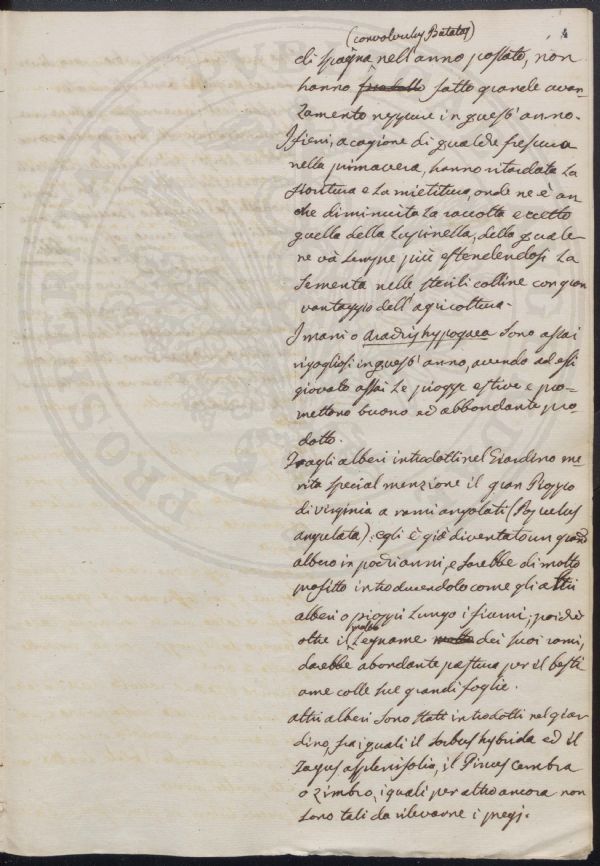 (convolvulus Batatas)
di spagna nell'anno passato, non
hanno fatto grande avan-
zamento neppure in quest'anno.
I fieni, a cagione di qualche frescura
nella primavera, hanno ritardata la
fioritura e la mietitura, onde ne è an
che diminuita la raccolta eccetto
quella della Lupinella, della quale
ne và sempre più estendendosi la
sementa nelle sterili colline con gran
vantaggio dell'agricoltura.
I mani o Arachis hypogaea sono assai
rigogliosi in quest'anno, avendo ad essi
giovato assai le piogge estive e pro-
mettono buono ed abbondante pro-
dotto.
Tragli alberi introdotti nel Giardino me-
rita special menzione il gran Pioppo
di virginia a rami angolati (Populus
angulata): egli è già diventato un grand
albero in pochi anni, e sarebbe di molto
profitto introducendolo come gli altri
alberi o pioppi lungo i fiumi; poichè
oltre il molto Legname dei suoi rami,
darebbe abondante pastura per il besti
ame colle sue grandi foglie.
altri alberi sono stati introdotti nel giar-
dino, fra i quali il Sorbus hybrida ed il
Fagus asplenifolia, il Pinus Cembra
o zimbro, i quali per altro ancora non
sono tali da rilevarne i pregj.
PVBLICA
PROSPERITATI